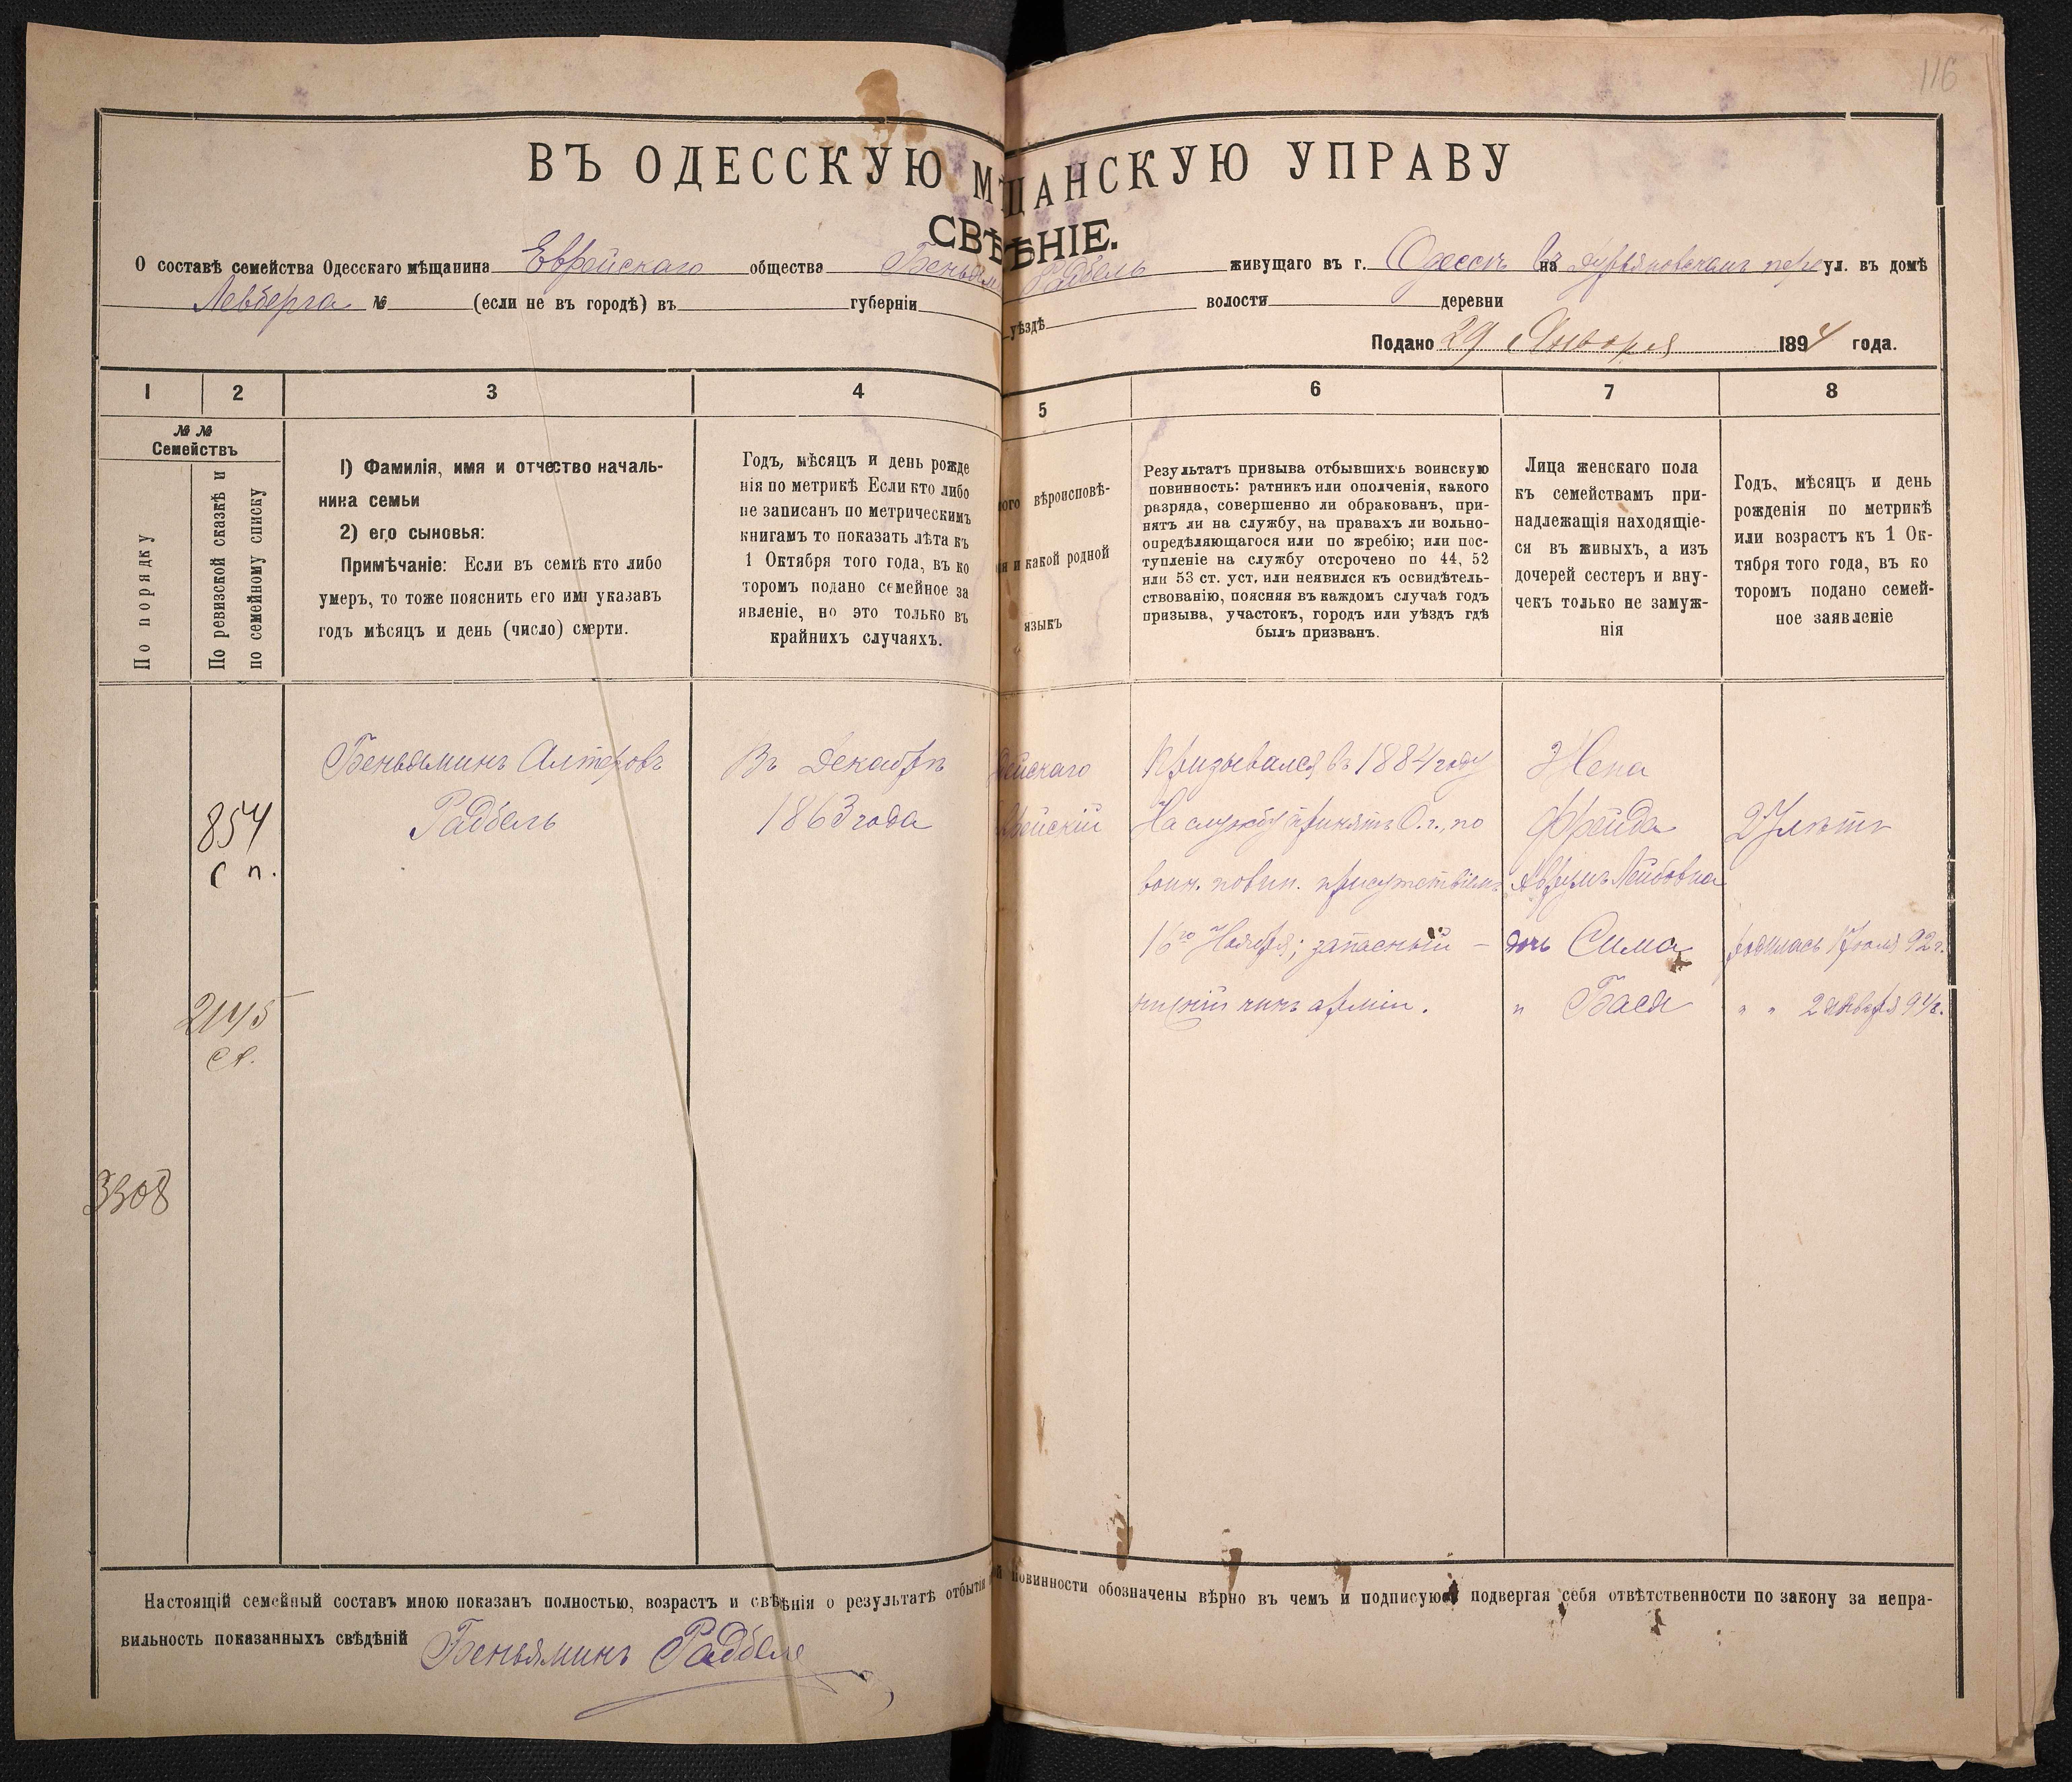 116
ВЪ ОДЕССКУЮ МѢЩАНСКУЮ УПРАВУ
СВѢДѢНІЕ.
О составѣ семейства Одесскаго мѣщанина Еврейскаго общества Беньямина Радбель живущаго въ г. Одессѣ на въ переул. въ домѣ
Левберга № (если не въ городѣ) въ губерніи уѣздѣ волости деревни
Подано 29 Января 1894 года.
1 2 3 4 5 6 7 8
№ №
Семействъ
По порядку
По ревизской сказкѣ и
по семейному списку
1) Фамилія, имя и отчество началь-
ника семьи
2) его сыновья:
Примѣчаніе: Если въ семьѣ кто либо
умеръ, то тоже пояснить его имя указавъ
годъ мѣсяцъ и день (число) смерти.
Годъ, мѣсяцъ и день рожде
нія по метрикѣ Если кто либо
не записанъ по метрическимъ
книгамъ то показать лѣта къ
1 Октября того года, въ ко
торомъ подано семейное за
явленіе, но это только въ
крайнихъ случаяхъ.
вѣроисповѣ-
и какой родной
языкъ
Результатъ призыва отбывшихъ воинскую
повинность: ратникъ или ополченія, какого
разряда, совершенно ли обракованъ, при-
нятъ ли на службу, на правахъ ли вольно-
опредѣляющагося или по жребію; или пос-
тупленіе на службу отсрочено по 44, 52
или 53 ст. уст. или неявился къ освидѣтель-
ствованію, поясняя въ каждомъ случаѣ годъ
призыва, участокъ, городъ или уѣздъ гдѣ
былъ призванъ.
Лица женскаго пола
къ семействамъ при-
надлежащія находящіе-
ся въ живыхъ, а изъ
дочерей сестеръ и вну-
чекъ только не замуж-
нія
Годъ, мѣсяцъ и день
рожденія по метрикѣ
или возрастъ къ 1 Ок-
тября того года, въ ко
торомъ подано семей-
ное заявленіе
854
с п.
2145
ст.
3308
Беньяминъ Алтеровъ
Радбель
Въ Декабрѣ
1863 года
дейскаго
врейскій
Призывался въ 1884 году
На службу принятъ О. г., по
воин. повин. присутствіемъ
16го Ноября; запасный —
нижній чинъ арміи.
Жена
Фрейда
Аврумъ Лейбовна
дочь Сима
" Бася
27 лѣтъ
родилась 1 Іюля 92 г.
" " 2 Января 94 г.
Настоящій семейный составъ мною показанъ полностью, возрастъ и свѣдѣнія о результатѣ отбытія повинности обозначены вѣрно въ чемъ и подписуюсь подвергая себя отвѣтственности по закону за непра-
вильность показанныхъ свѣдѣній Беньяминъ Радбель